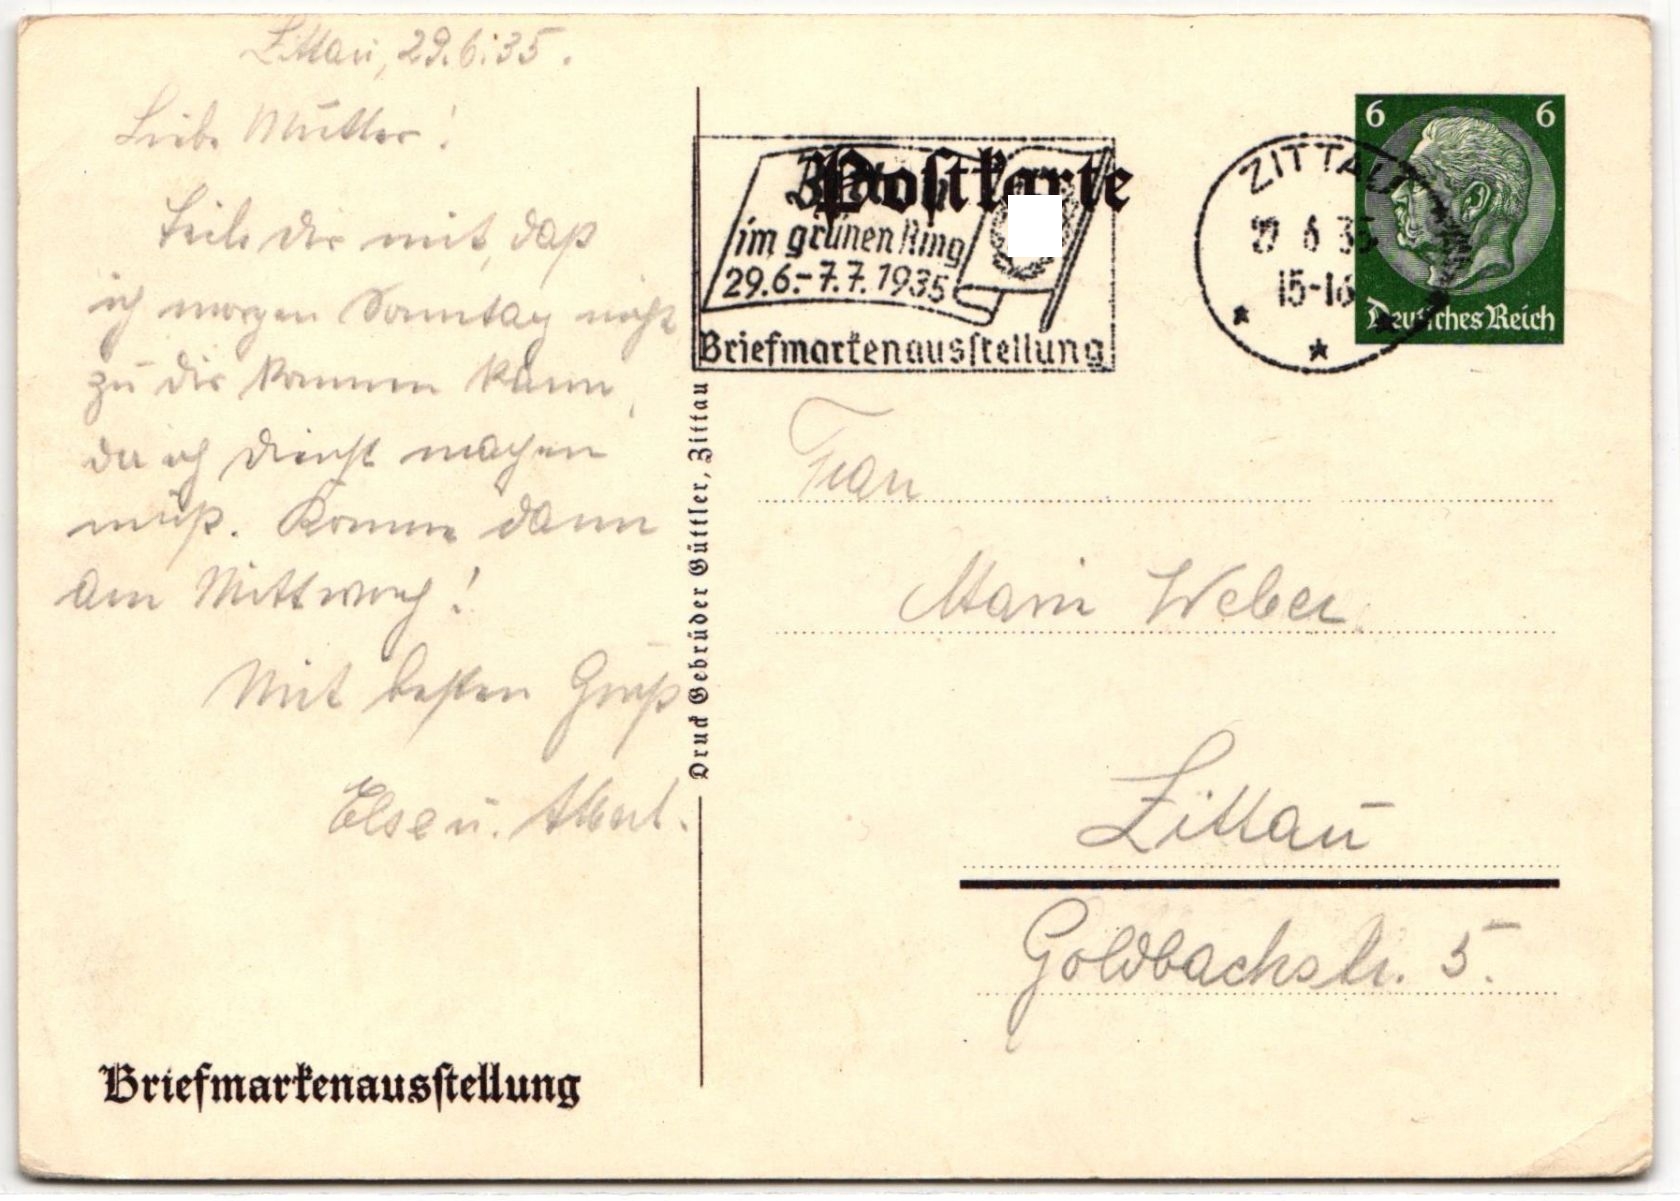 Zittau, 29.6.35.
Liebe Mutter!
Teile dir mit, daß
ich morgen Sonntag nicht
zu dir kommen kann,
da ich Dienst machen
muß. Komme dann
am Mittwoch!
Mit besten Gruß
Else u.
Briefmarkenausstellung
Druck Gebrüder Güttler, Zittau
Postkarte
im grünen Ring
29.6.-7.7.1935
Briefmarkenausstellung
ZITTAU
29 6 35
15-16
6 6
Deutsches Reich
Frau
Marie Weber
Zittau
Goldbachstr. 5.